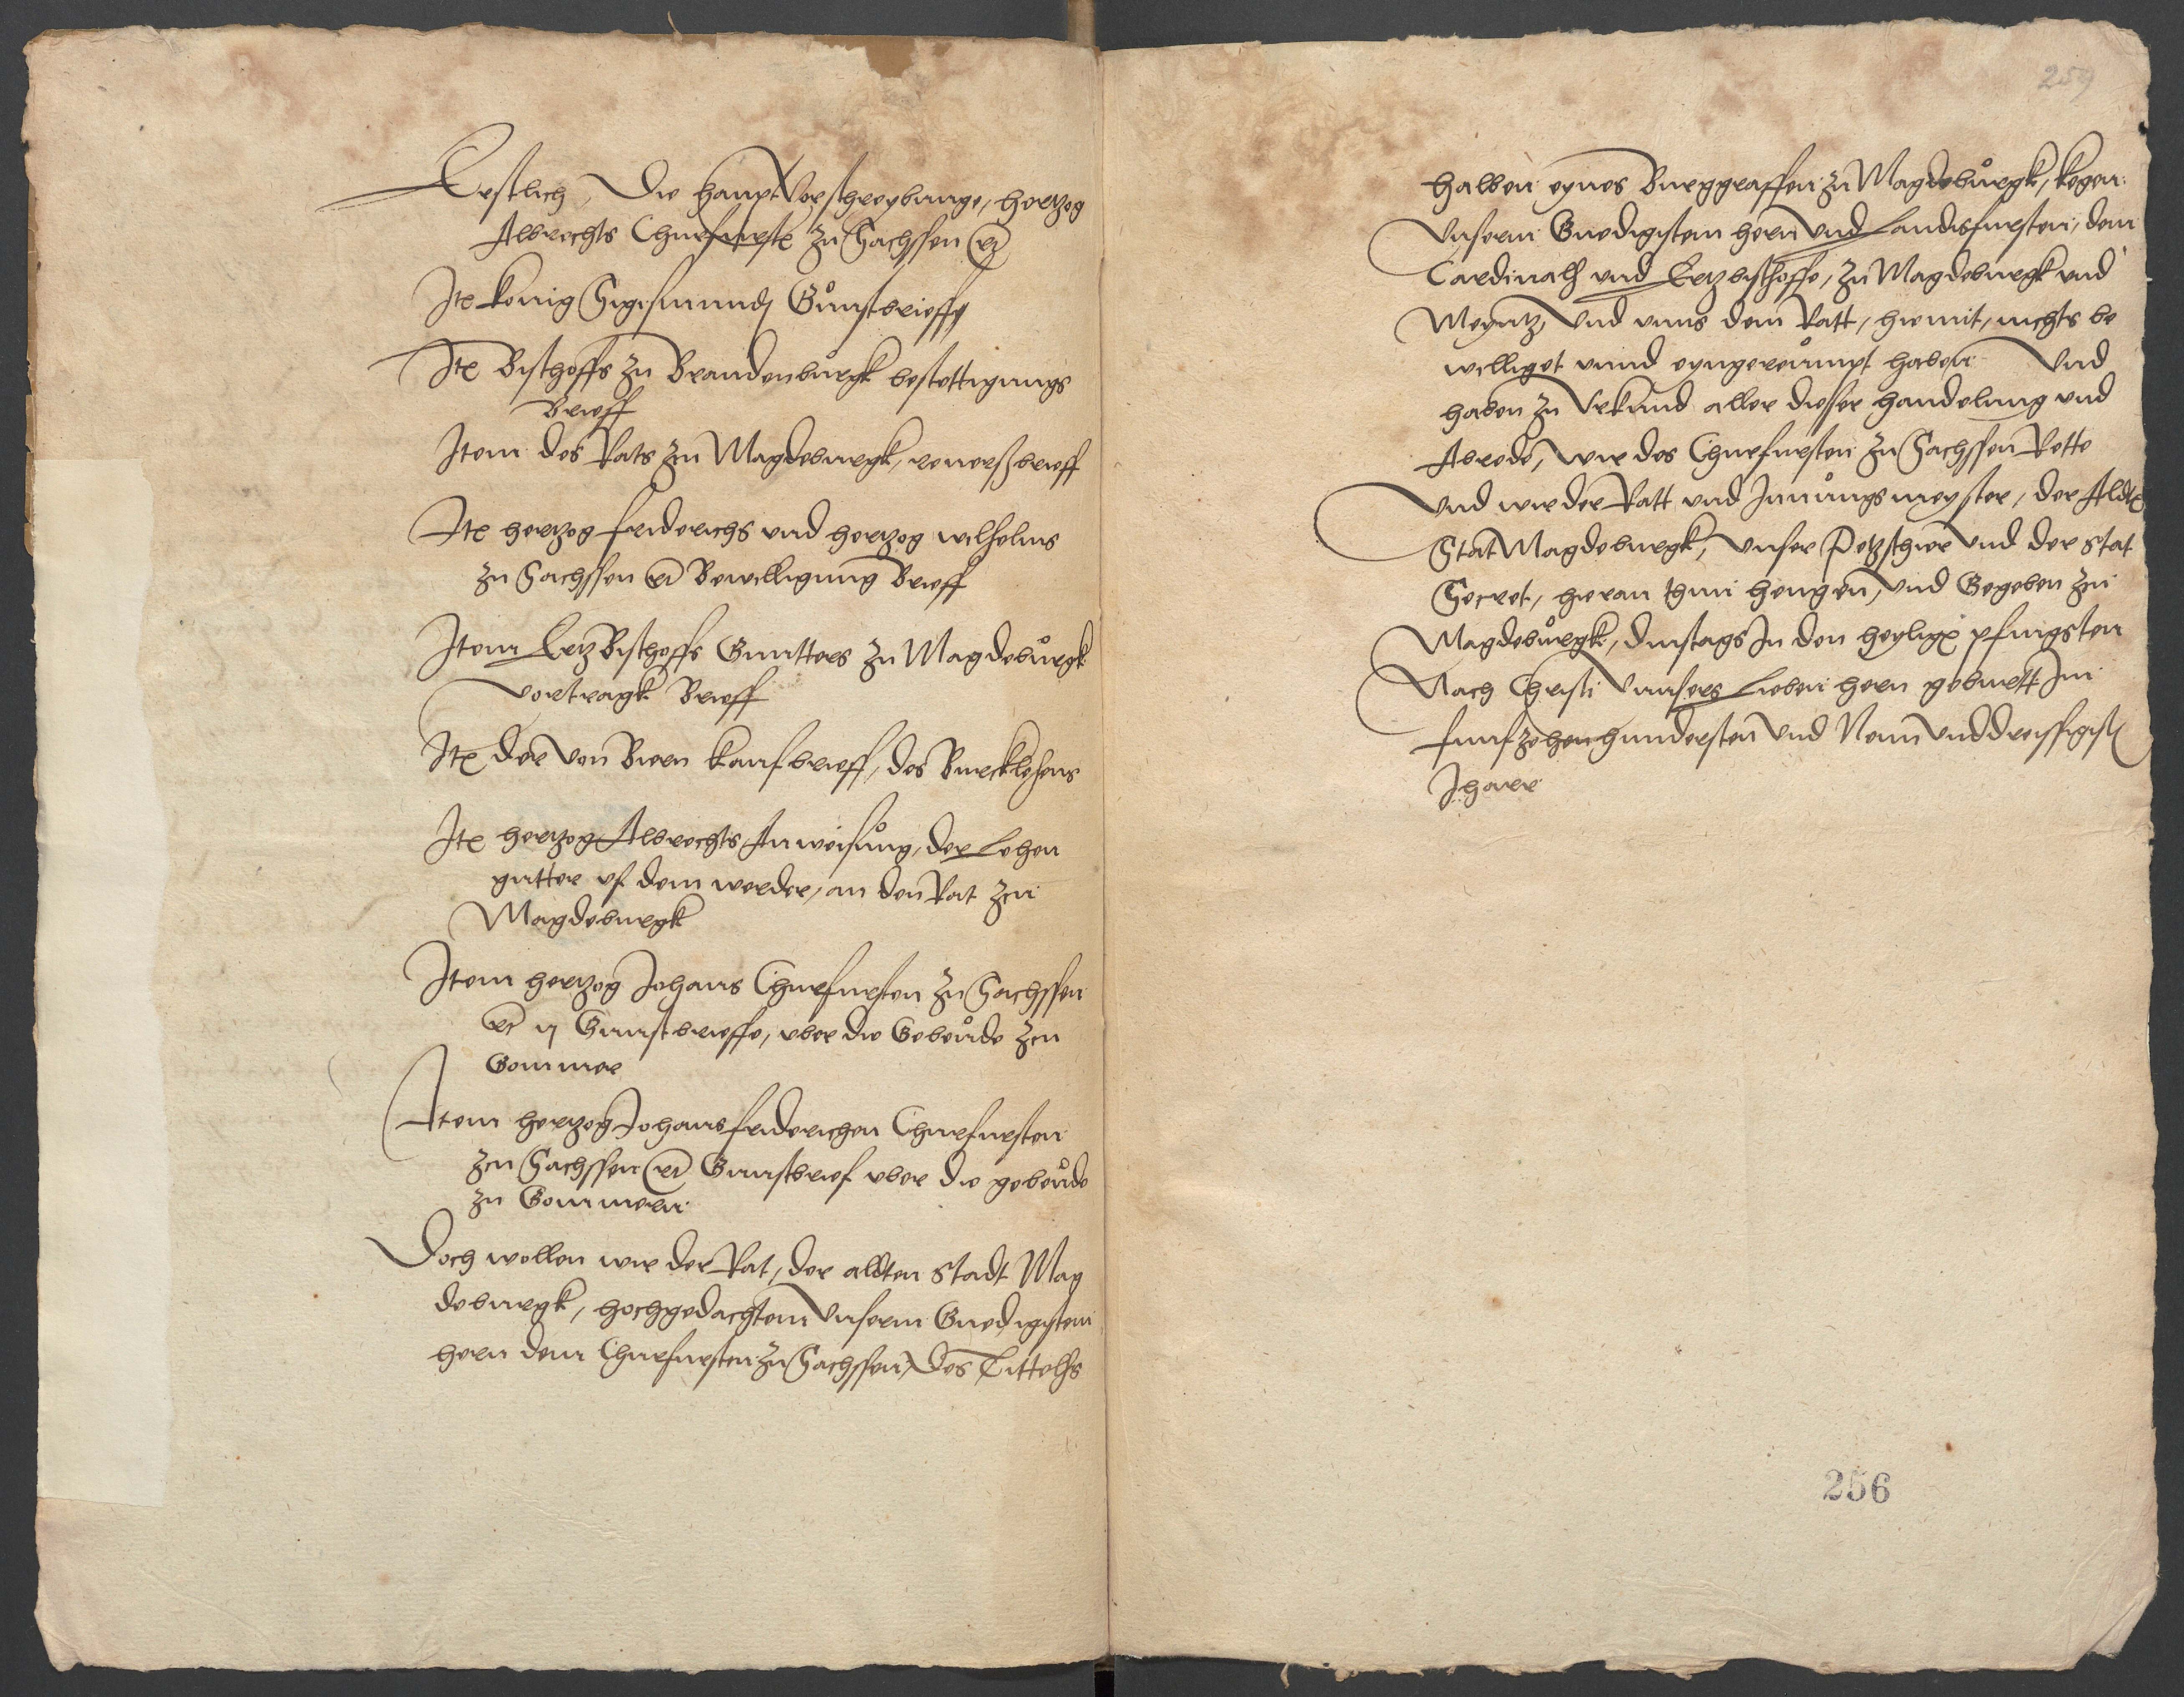 Erstlich, die hauptvorschreybunge, hertzog
Albrechts Churfurste zu Sachssen etc
Ite konig Sigismundi Gunstbrieffe
Ite Bisthoffs zu Brandenburgk bestettigungs
Brieff
Item des Rats zu Magdeburgk, reuersbrieff
Ite hertzog friderichs und hertzog wilhelms
zu Sachssen etc Bewilligung Brieff
Item Ertzbisthoffs Guntters zu Magdeburgk
vortragk Brieff
Ite der von Biern kaufbrieff, des Burcklehens
Ite hertzog Albrechts Anweisung, der Lehen
gutter uf dem werder, an den Rat zu
Magdeburgk
Item hertzog Johans Churfursten zu Sachssen
etc ij Gunstbrieffe, uber die Gebeude zu
Gommer
Item hertzog Johans friderichen Churfursten
zu Sachssen etc Gunstbrief uber die gebeude
zu Gommern
Doch wollen wir der Rat, der aldten Stadt Mag
deburgk, hochgedachtem unserm Gnedigstem
hern dem Churfursten zu Sachssen, des Tittelhs
259
halben eynes Burggraffen zu Magdeburgk, kegen
unserm Gnedigstem hern und Landisfursten, dem
Cardinalh und Ertzbisthoffe, zu Magdeburgk und
Meyntz, und unns dem Ratt, hiemit, nichts be
williget unnd eyngereumpt haben Und
haben zu Urkund aller dieser handelung und
Abrede, wir des Churfursten zu Sachssen Rette
und wir der Ratt und Innungsmeyster, der Aldte
Stat Magdeburgk, unser Petzschir und der Stat
Secret, hieran thun hengen, und Gegeben zu
Magdeburgk, dinstags In den heylige pfingsten
Nach Christi Unnsers Lieben hern geburtt Im
funfzehenhundersten und Neun unddreissigist
Jhare
256